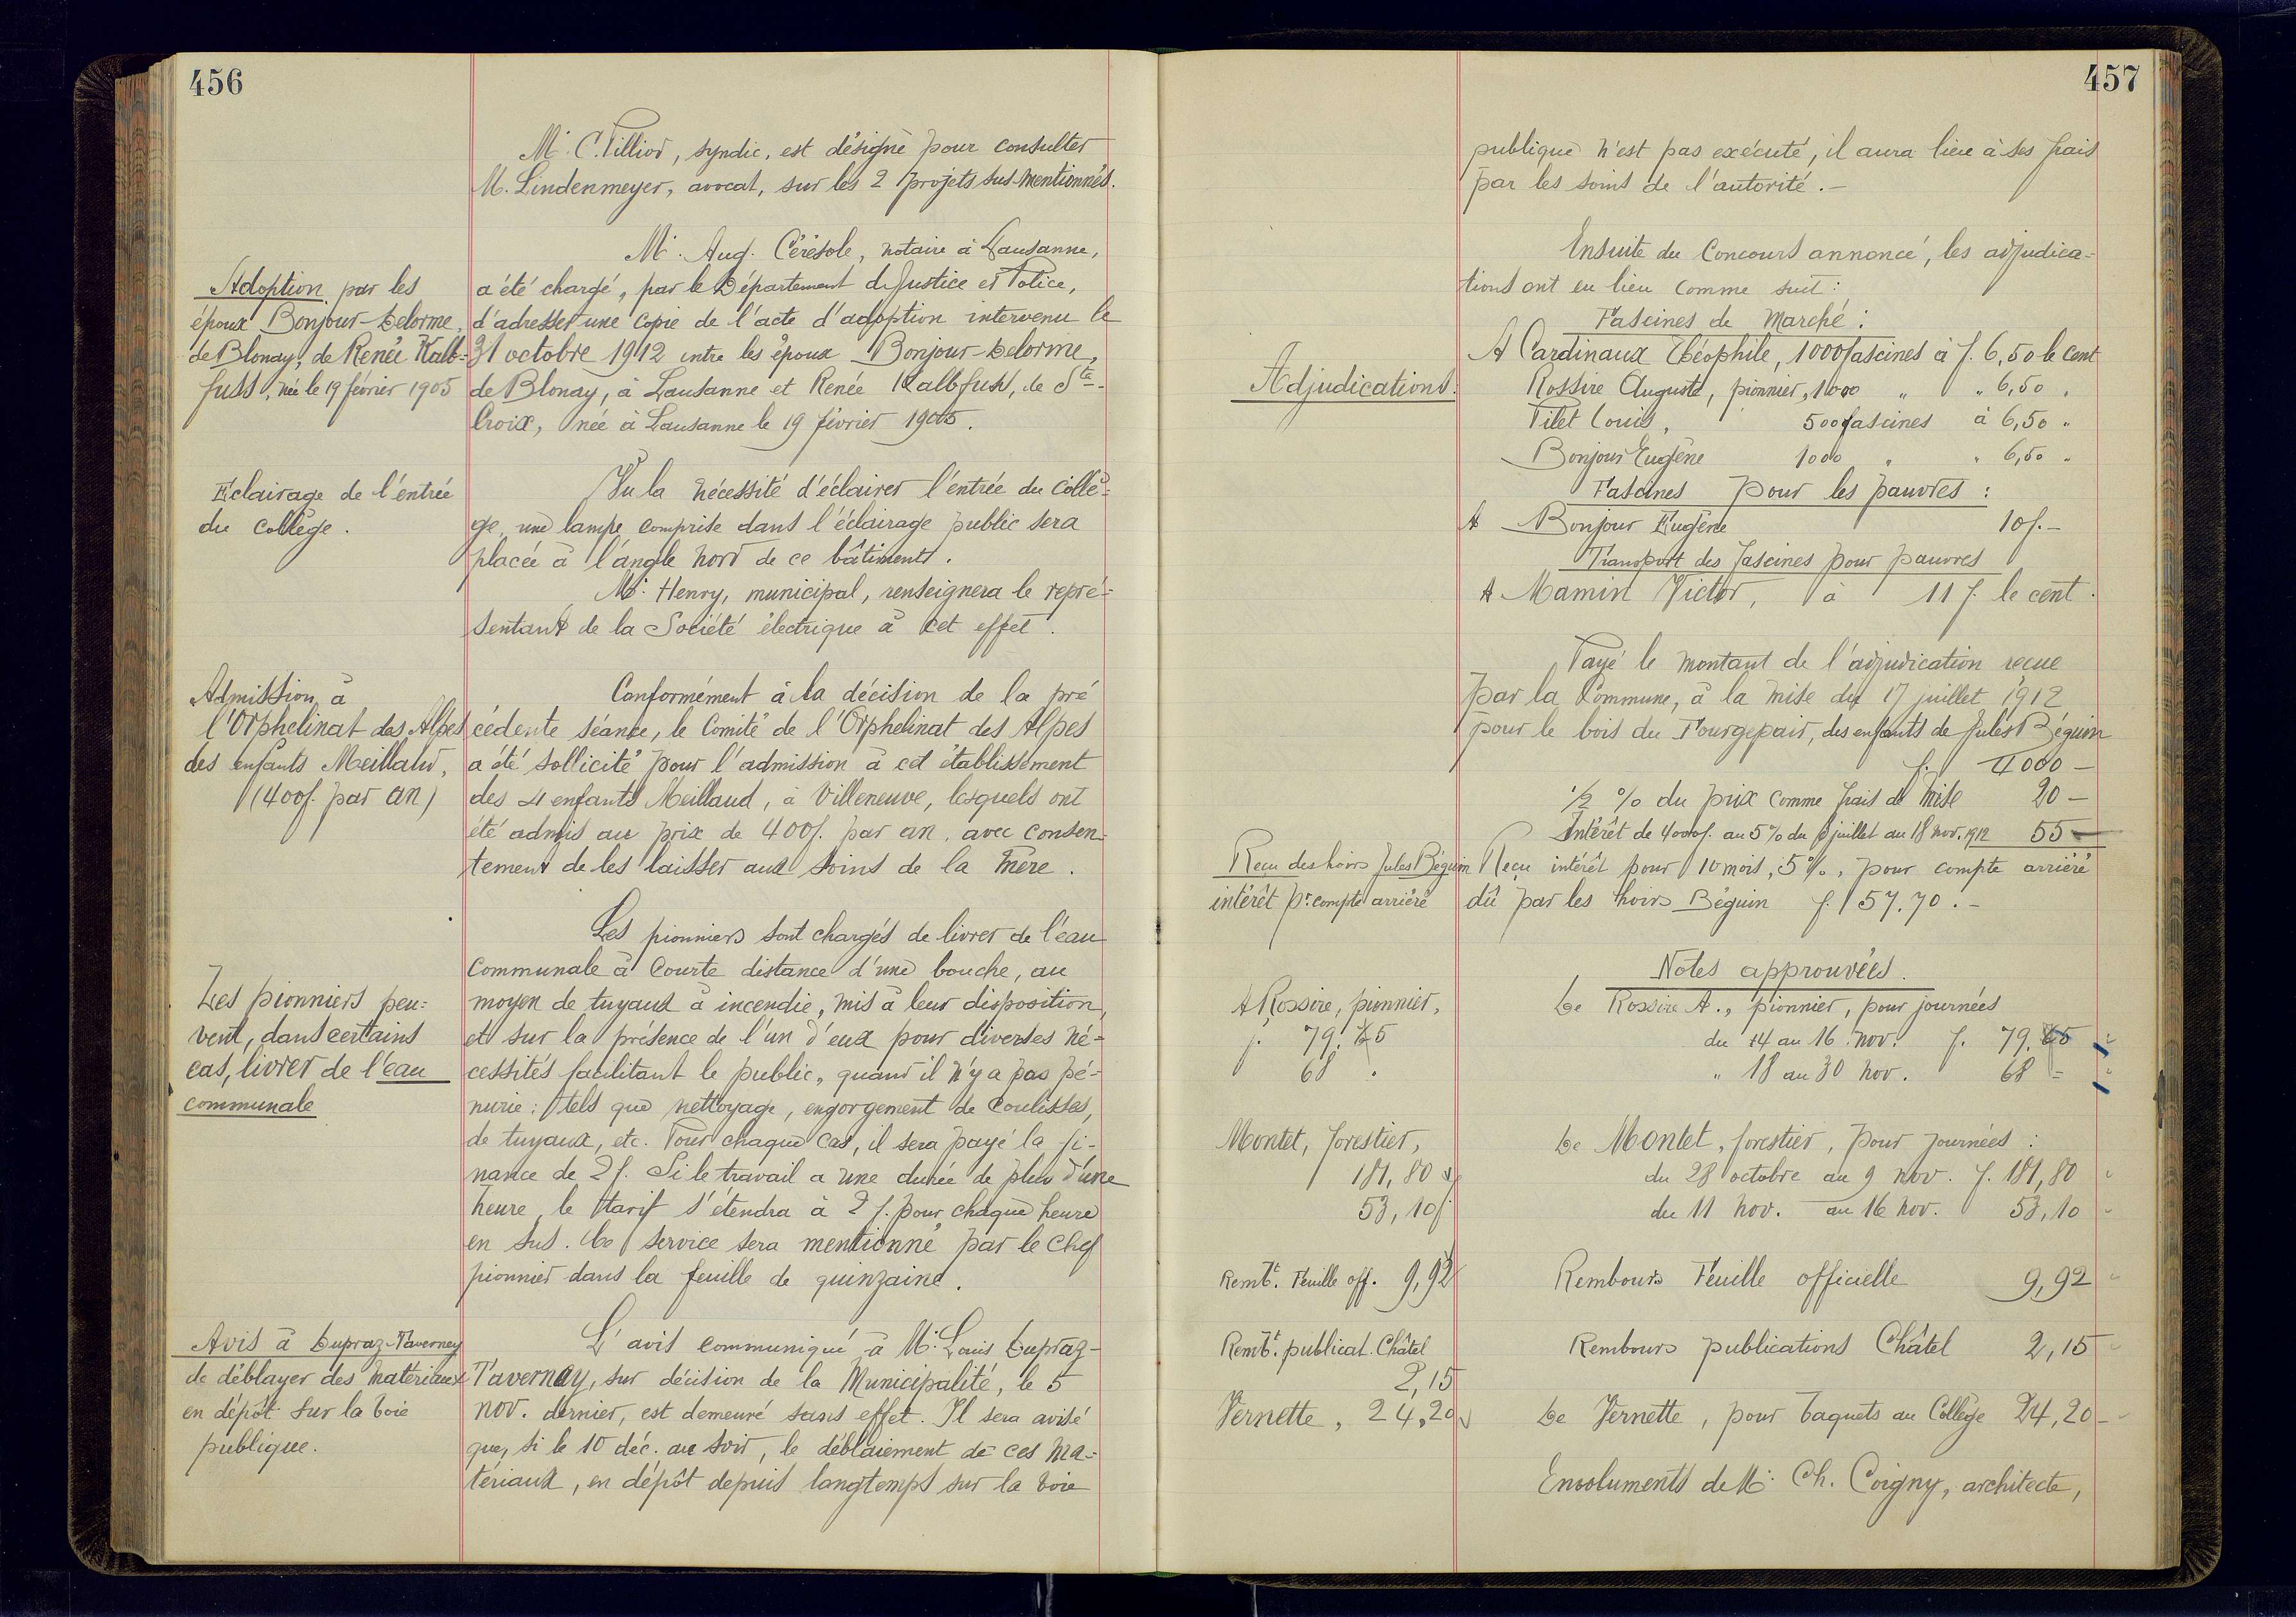 456
Mr. C. Pilliod, syndic, est désigné pour consulter
M. Lindenmeyer, avocat, sur les 2 projets sus-mentionnés.
Adoption par les
époux Bonjour-Delorme,
de Blonay, de Renée Kalb-
fuss, née le 19 février 1905
Mr. Aug. Cérésole, notaire à Lausanne,
a été chargé, par le Département de Justice et Police,
d'adresser une copie de l'acte d'adoption intervenu le
31 octobre 1912 entre les époux Bonjour-Delorme,
de Blonay, à Lausanne et Renée Kalbfuss, de Ste-
Croix, née à Lausanne le 19 février 1905.
Eclairage de l'entrée
du collège.
Vu la nécessité d'éclairer l'entrée du collè-
ge, une lampe, comprise dans l'éclairage public sera
placée à l'angle nord de ce bâtiment.
Mr. Henry, municipal, renseignera le repré-
sentant de la Société électrique à cet effet.
Admission à
l'Orphelinat des Alpes
des enfants Meillaud,
(400f. par an)
Conformément à la décision de la pré
cédente séance, le Comité de l'Orphelinat des Alpes
a été sollicité pour l'admission à cet établissement
des 4 enfants Meillaud, à Villeneuve, lesquels ont
été admis au prix de 400f. par an, avec consen-
tement de les laisser aux soins de la mère.
Les pionniers peu-
vent, dans certains
cas, livrer de l'eau
communale
Les pionniers sont chargés de livrer de l'eau
communale à courte distance d'une bouche, au
moyen de tuyaux à incendie, mis à leur disposition,
et sur la présence de l'un d'eux pour diverses né-
cessités facilitant le public, quand il n'y a pas pé-
nurie: tels que nettoyage, engorgement de coulisses,
de tuyaux, etc. Pour chaque cas, il sera payé la fi-
nance de 2 f. Si le travail a une durée de plus d'une
heure, le tarif s'étendra à 2 f. pour chaque heure
en sus. Ce service sera mentionné par le chef
pionnier dans la feuille de quinzaine.
Avis à Dupraz-Taverney
de déblayer des matériaux
en dépôt sur la voie
publique.
L'avis communiqué à Mr. Louis Dupraz-
Taverney, sur décision de la Municipalité, le 5
nov. dernier, est demeuré sans effet. Il sera avisé
que, si le 10 déc. au soir, le déblaiement de ces ma-
tériaux, en dépôt depuis longtemps sur la voie
457
publique n'est pas exécuté, il aura lieu à ses frais
par les soins de l'autorité.-
Adjudications.
Ensuite du Concours annoncé, les adjudica-
tions ont eu lieu comme suit:
Fascines de Marché:
A Cardinaux Théophile, 1000 fascines à f. 6,50 le cent
Rossire Auguste, pionnier, 1000 " " 6,50 "
Pilet Louis, 500 fascines à 6,50 "
Bonjour Eugène 1000 " " 6,50 "
Fascines pour les pauvres:
A Bonjour Eugène 10f.-
Transport des fascines pour pauvres
A Mamin Victor, à 11 f. le cent.
Payé le montant de l'adjudication reçue
par la Commune, à la mise du 17 juillet 1912
pour le bois du Fourgepair, des enfants de Jules Béguin
f. 4000 -
½ % du prix comme frais de mise 20 -
Intérêt de 4000f. au 5% du juillet au 18 nov. 1912 55 -
Reçu des hoirs Jules Béguin
intérêt pr. compte arriéré
Reçu intérêt pour 10 mois, 5%, pour compte arriéré
dû par les hoirs Béguin f. 157.70.-
Notes approuvées.
A Rossire, pionnier,
f. 79.65
68.
De Rossire A., pionnier, pour journées
du 14 au 16 nov. f. 79.65
" 18 au 30 nov. 68 =
Montet, forestier,
181,80
53,10
De Montet, forestier, pour journées:
du 28 octobre au 9 nov. f. 181,80
du 11 nov. au 16 nov. 53,10
Rembt. Feuille off. 9,92
Rembours Feuille officielle 9,92
Rembt. publicat. Châtel
2,15
Rembours publications Châtel 2,15
Vernette, 24,20
De Vernette, pour baquets au Collège 24,20-
Emoluments de Mr. Ch. Coigny, architecte,